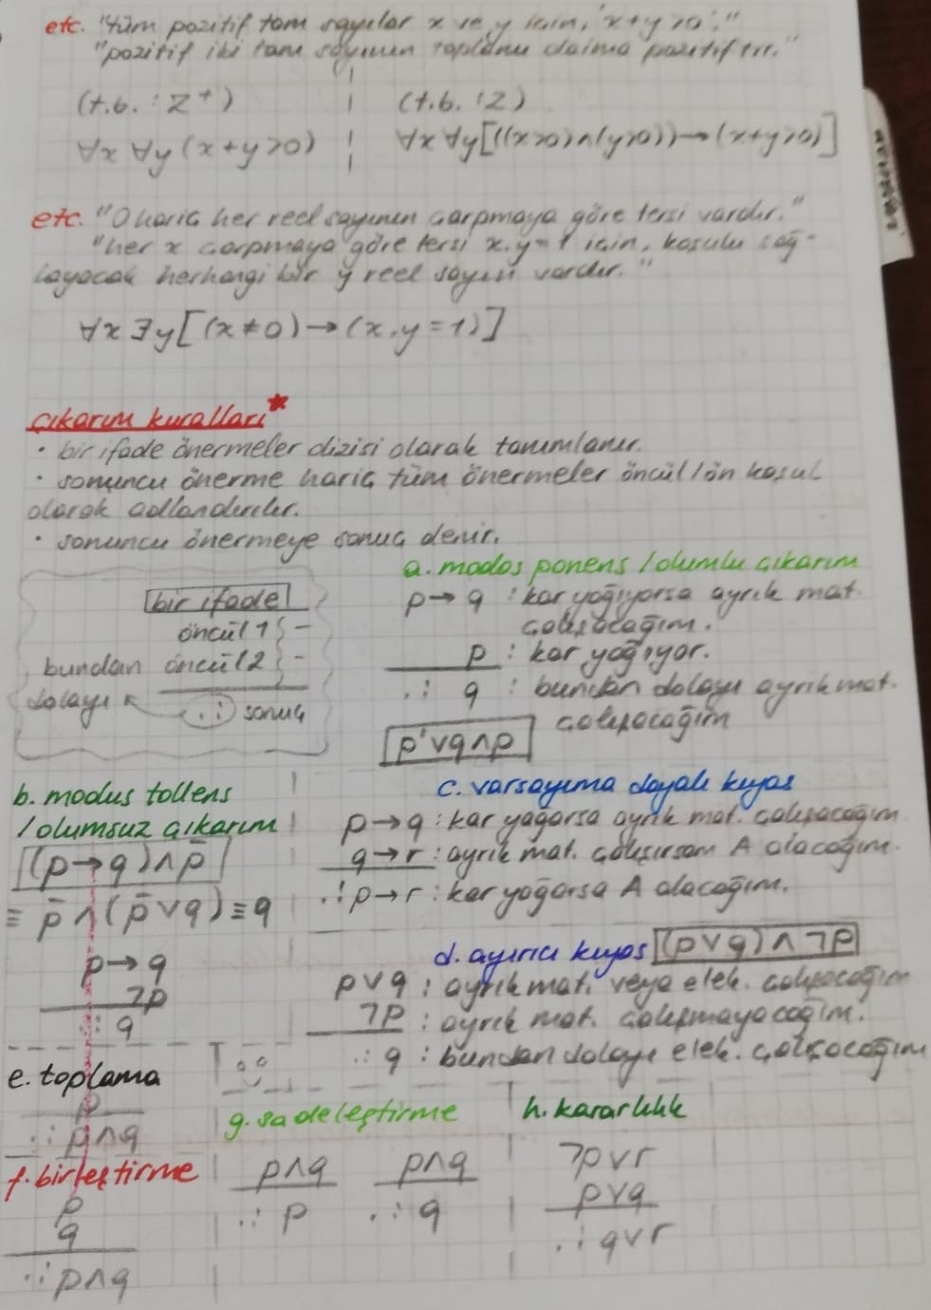 etc. "tüm pozitif tam sayılar x ve y için, x+y>0."
"pozitif iki tam sayının toplamı daima pozitiftir."
(t.b. : Z⁺)
∀x ∀y (x+y>0)
(t.b. : Z)
∀x ∀y[((x>0)∧(y>0))→(x+y>0)]
etc. "0 hariç her reel sayının çarpmaya göre tersi vardır."
"her x çarpmaya göre tersi x.y=1 için, koşulu sağ-
layacak herhangi bir y reel sayısı vardır."
∀x ∃y[(x≠0)→(x.y=1)]
çıkarım kuralları*
• bir ifade önermeler dizisi olarak tanımlanır.
• sonuncu önerme hariç tüm önermeler öncül/ön koşul
olarak adlandırılır.
• sonuncu önermeye sonuç denir.
bir ifade
öncül 1 } –
bundan öncül 2 } –
dolayı ∴ sonuç
a. modos ponens / olumlu çıkarım
p→q : kar yağıyorsa ayrık mat.
çalışacağım.
p : kar yağıyor.
∴ q : bundan dolayı ayrık mat.
çalışacağım
p'∨q∧p
b. modus tollens
/ olumsuz çıkarım
(p→q)∧p̄
≡ p̄∧(p̄∨q)≡q
p→q
¬p
∴ q
c. varsayıma dayalı kıyas
p→q : kar yağarsa ayrık mat. çalışacağım.
q→r : ayrık mat. çalışırsam A alacağım.
∴ p→r : kar yağarsa A alacağım.
d. ayırıcı kıyas (p∨q)∧¬p
p∨q : ayrık mat. veya elek. çalışacağım
¬p : ayrık mat. çalışmayacağım.
∴ q : bundan dolayı elek. çalışacağım
e. toplama
p
∴ p∧q
f. birleştirme
p
q
∴ p∧q
g. sadeleştirme
p∧q
∴ p
p∧q
∴ q
h. kararlılık
¬p∨r
p∨q
∴ q∨r